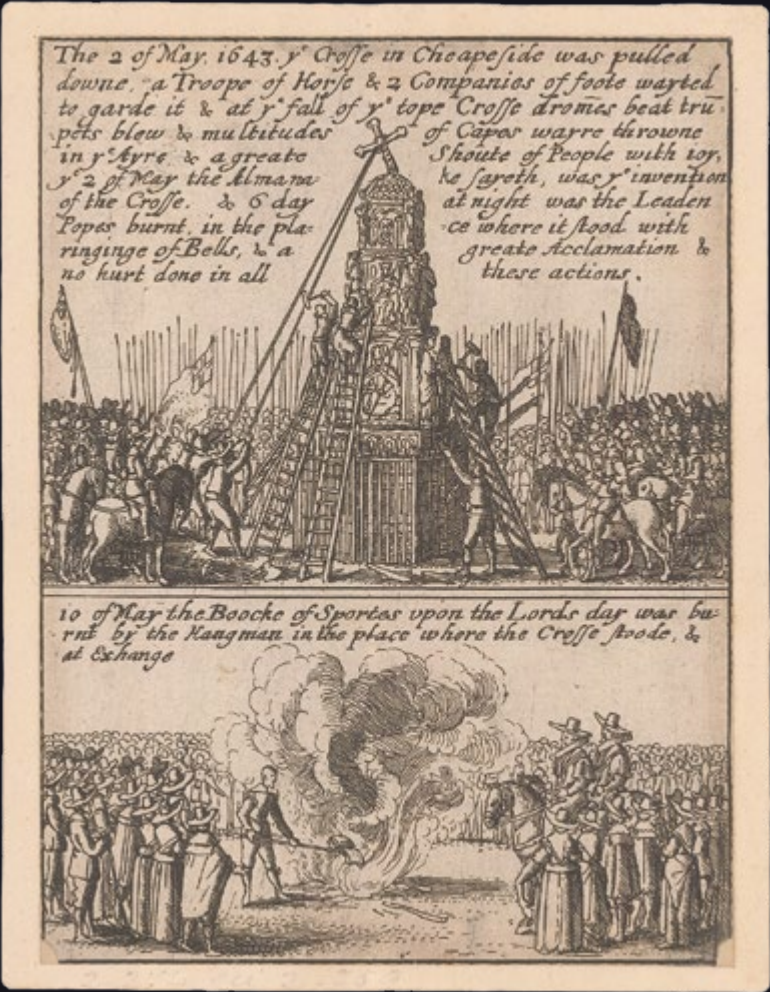 The 2 of May. 1643. yᵉ Crosse in Cheapeside was pulled
downe, a Troope of Horse & 2 Companies of foote wayted
to garde it & at yᵉ fall of yᵉ tope Crosse dromes beat tru-
pets blew & multitudes of Capes wayre throwne
in yᵉ Ayre, & a greate Shoute of People with ioy,
yᵉ 2 of May the Almana ke sayeth, was yᵉ invention
of the Crosse. & 6 day at night was the Leaden
Popes burnt, in the pla- ce where it stood with
ringinge of Bells, & a greate Acclamation &
no hurt done in all these actions.
10 of May the Boocke of Sportes vpon the Lords day was bu-
rnt by the Hangman in the place where the Crosse stoode, &
at Exhange